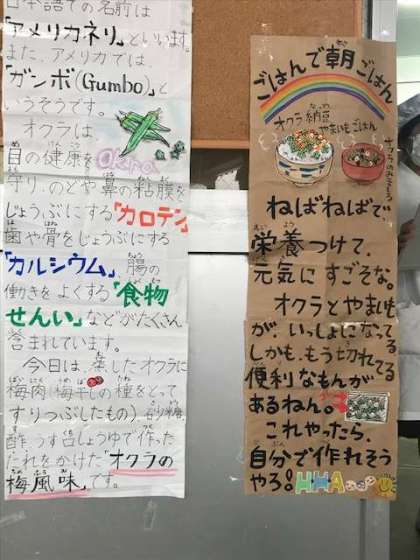 日本語での名前は
「アメリカネリ」といいます。
また、アメリカでは、
「ガンボ(Gumbo)」と
いうそうです。
オクラは、
目の健康を
Okra
守り、のどや鼻の粘膜を
じょうぶにする「カロテン」
歯や骨をじょうぶにする
「カルシウム」、腸の
働きをよくする「食物
せんい」などがたくさん
含まれています。
今日は、蒸したオクラに
梅肉(梅干しの種をとって
すりつぶしたもの)、砂糖、
酢、うす口しょうゆで作った
たれをかけた"オクラの
梅風味"です。
ごはんで朝ごはん
オクラ納豆
やまいもごはん
オクラのみそしる
ねばねばで
栄養つけて、
元気にすごそな。
オクラとやまいも
が、いっしょになってる
しかも、もう切れてる
便利なもんが
あるねん。
これやったら、
自分で作れそう
やろ!